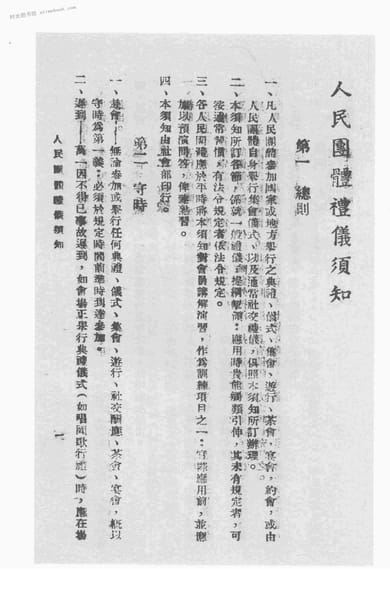 人民團體禮儀須知
第一 總則
一、凡人民團體參加國家或地方舉行之典禮、儀式、集會、遊行、茶會、宴會、約會,或由
人民團體自身舉行集會儀式、以及通常社交禮儀,俱照本須知所訂辦理。
二、本須知所訂各節,係就一般禮儀,提綱挈領,應用時貴能觸類引伸,其未有規定者,可
從通常習慣,有法令規定者依法令規定。
三、各人民團體應於平時將本須知對會員講解演習,作為訓練項目之一;實際應用前,並應
加以預演問答,俾臻熟習。
四、本須知由社會部印行。
第二 守時
一、赴會——無論參加或舉行任何典禮、儀式、集會、遊行、社交酬應、茶會、宴會,概以
守時為第一義;必須於規定時間前準時到達參加。
二、遲到——萬一因不得已事故遲到,如會場正舉行典禮儀式(如唱國歌行禮)時,應在場
人民團體禮儀須知
一